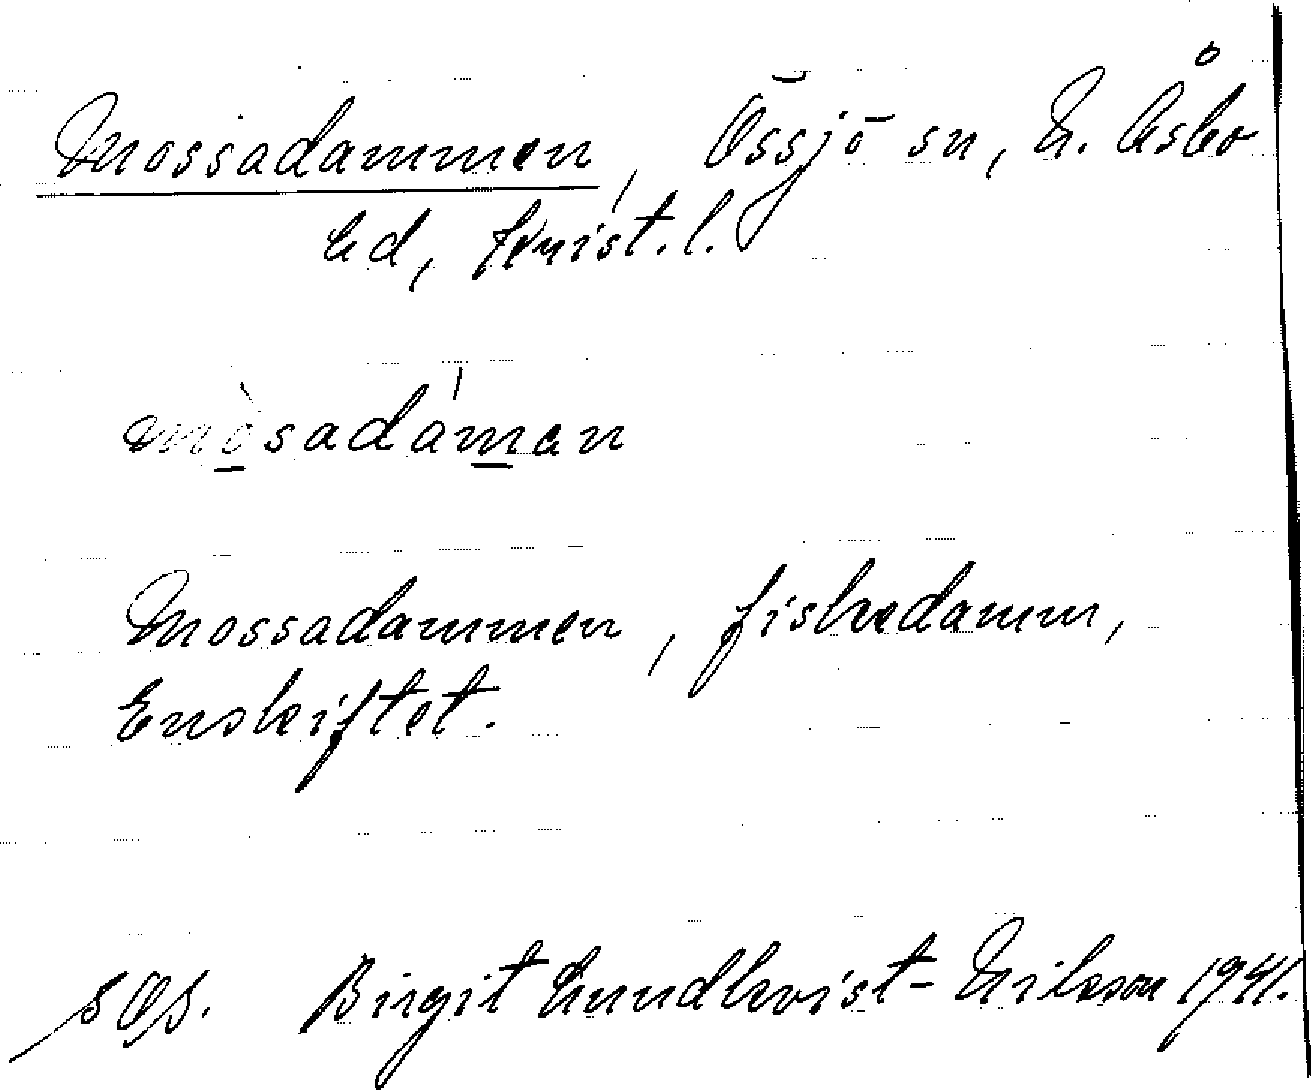 Mossadammen, Össjö sn, N. Åsbo
hd, Krist. l.
mòsadáman
Mossadammen, fiskedamm,
Enskiftet.
Birgit Lundkvist-Nilsson 1941.